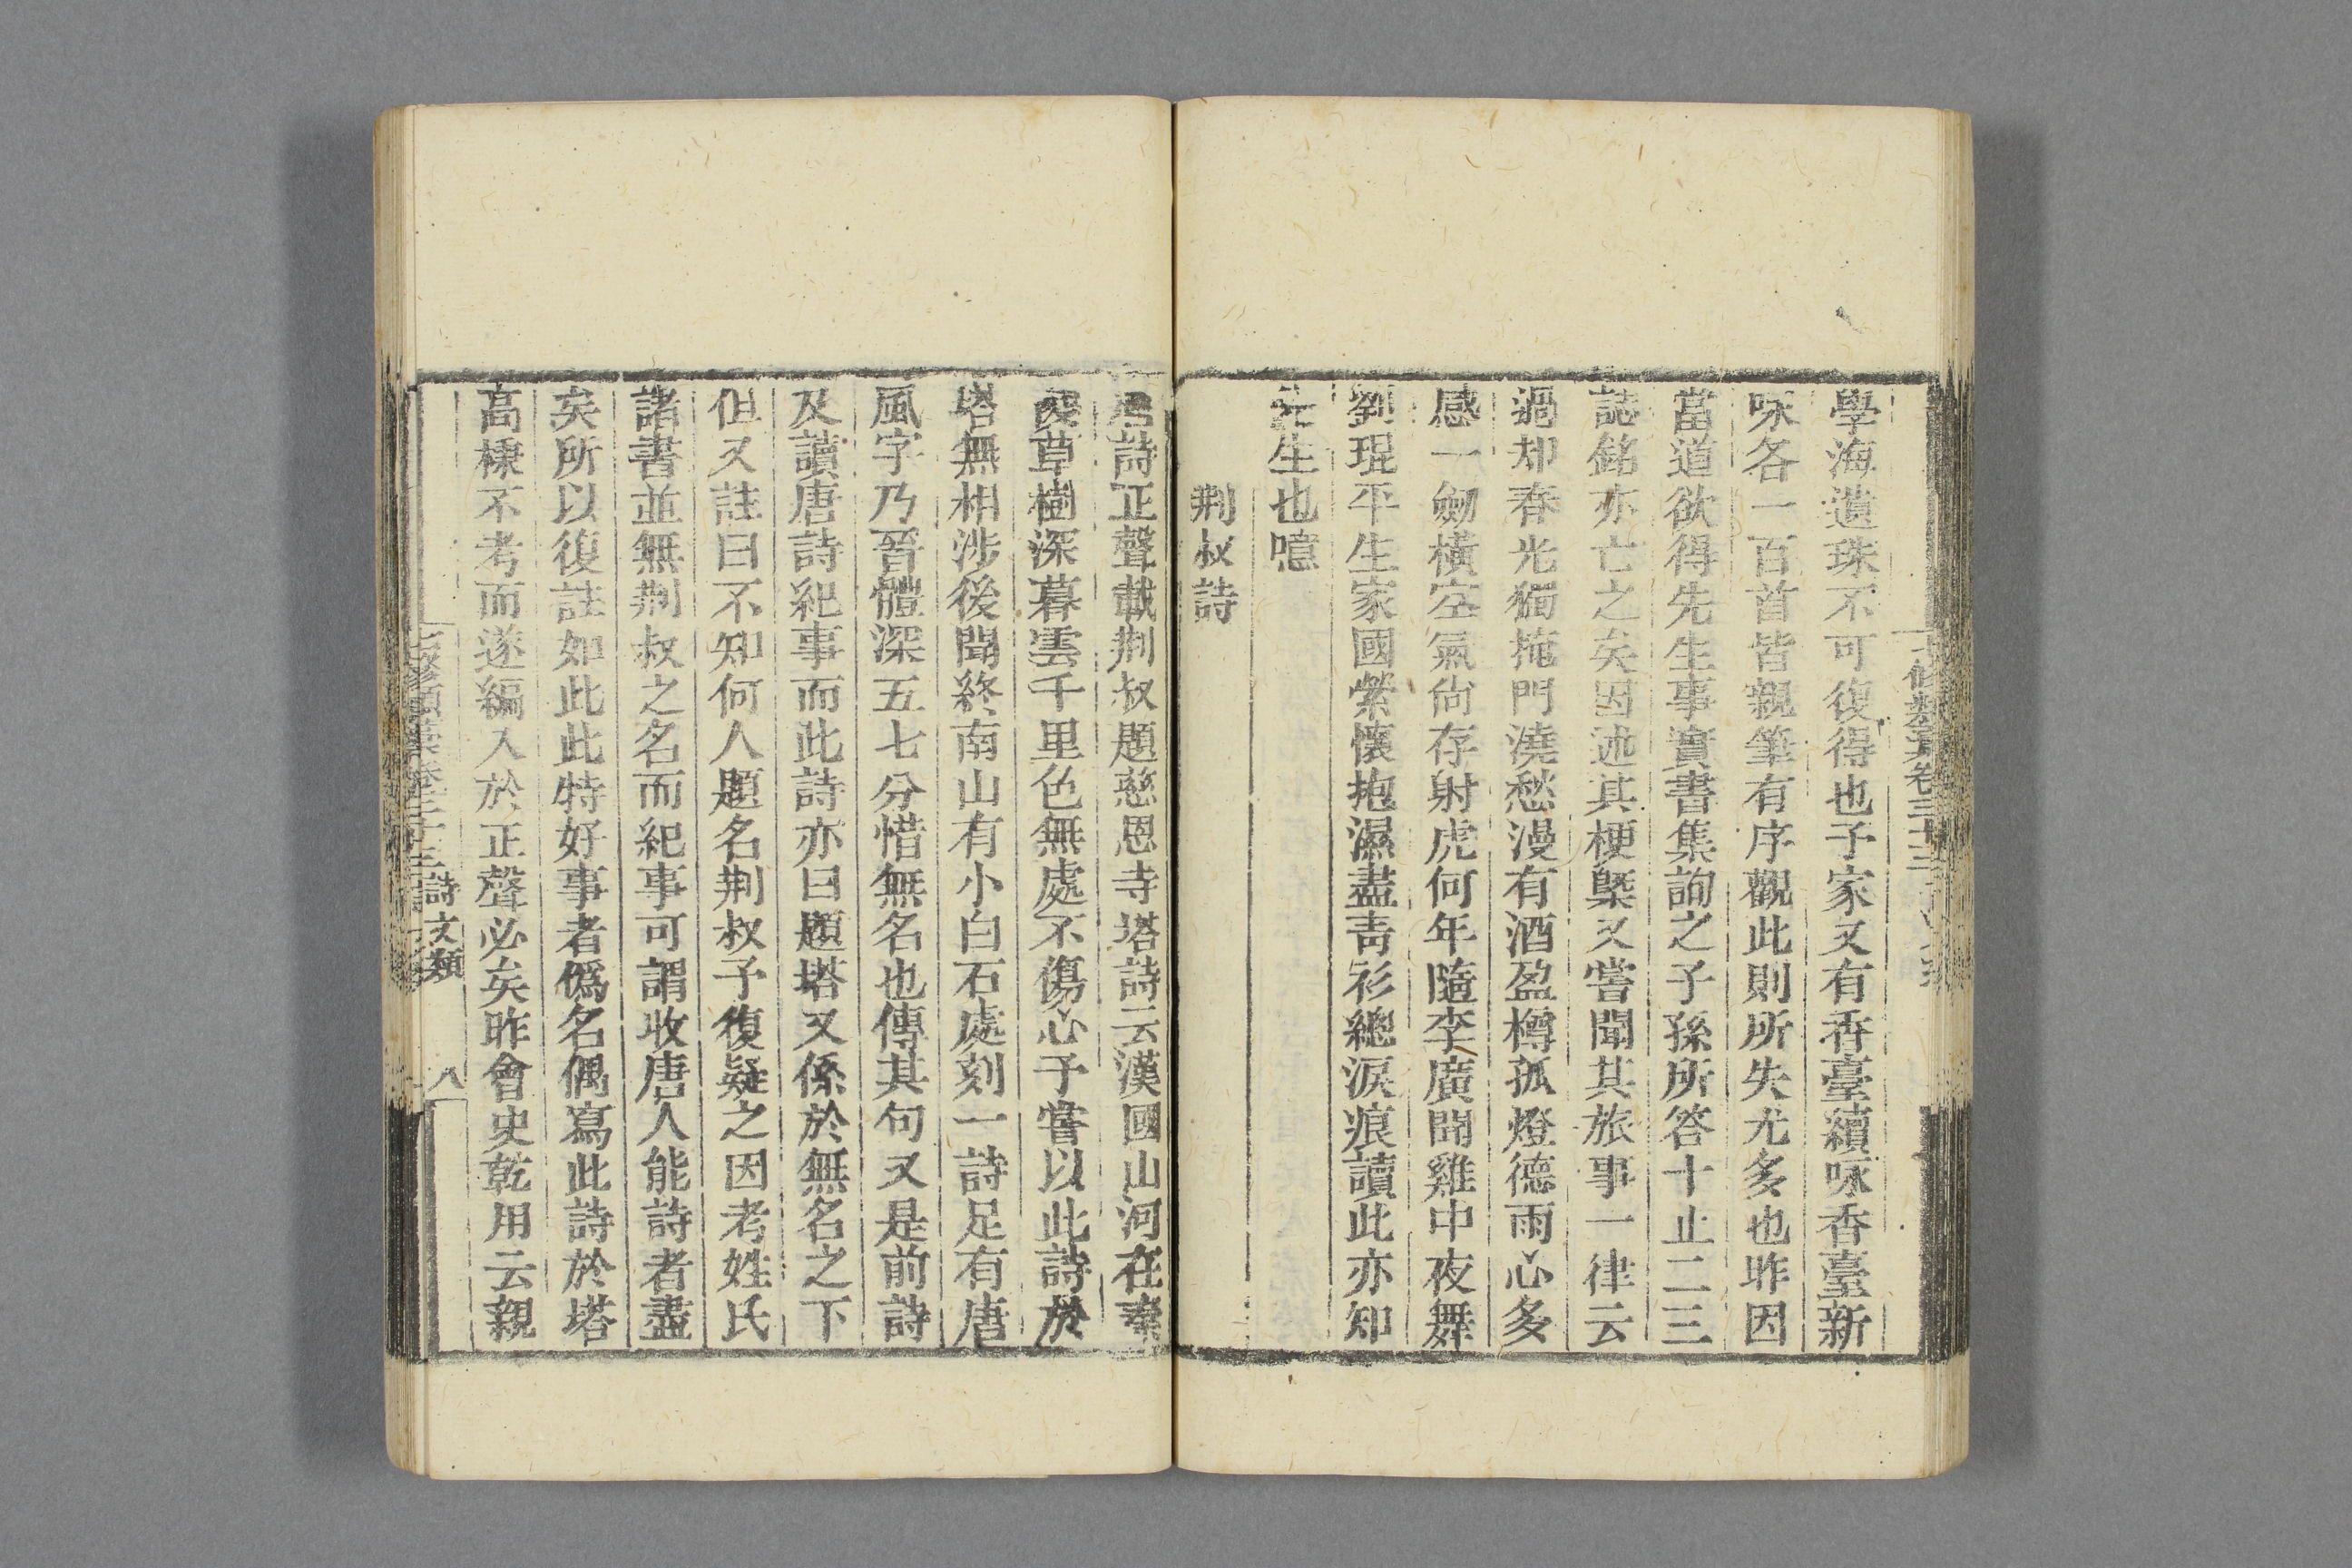 學海遺珠不可復得也予家又有香臺續咏香臺新
咏各一百首皆親筆有序觀此則所失尤多也昨因
當道欲得先生事實書集詢之子孫所答十止二三
誌銘亦亡之矣因述其梗槩又嘗聞其旅事一律云
過却春光獨掩門澆愁漫有酒盈樽孤燈德雨心多
感一劒橫空氣尙存射虎何年隨李廣聞雞中夜舞
劉琨平生家國縈懷抱濕盡靑衫總淚痕讀此亦知
先生也噫
荆叔詩
唐詩正聲載荆叔題慈恩寺塔詩云漢國山河在秦
陵草樹深暮雲千里色無處不傷心予嘗以此詩於
塔無相涉後聞終南山有小白石處刻一詩足有唐
風字乃晉體深五七分惜無名也傳其句又是前詩
及讀唐詩紀事而此詩亦曰題塔又係於無名之下
但又註曰不知何人題名荆叔予復疑之因考姓氏
諸書並無荆叔之名而紀事可謂收唐人能詩者盡
矣所以復註如此此特好事者僞名偶寫此詩於塔
高棅不考而遂編入於正聲必矣昨會史乾用云親
七修類藁卷三十三 詩文類 八